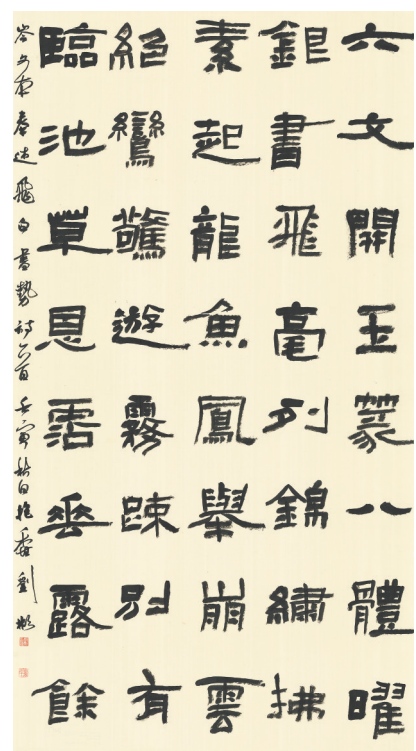 六文開玉篆八體曜
銀書飛毫列錦繡拂
素起龍魚鳳舉崩雲
絕鸞驚遊霧踈別有
臨池草恩霑垂露餘
岑文本奉述飛白書勢詩一首 壬寅秋日 劉